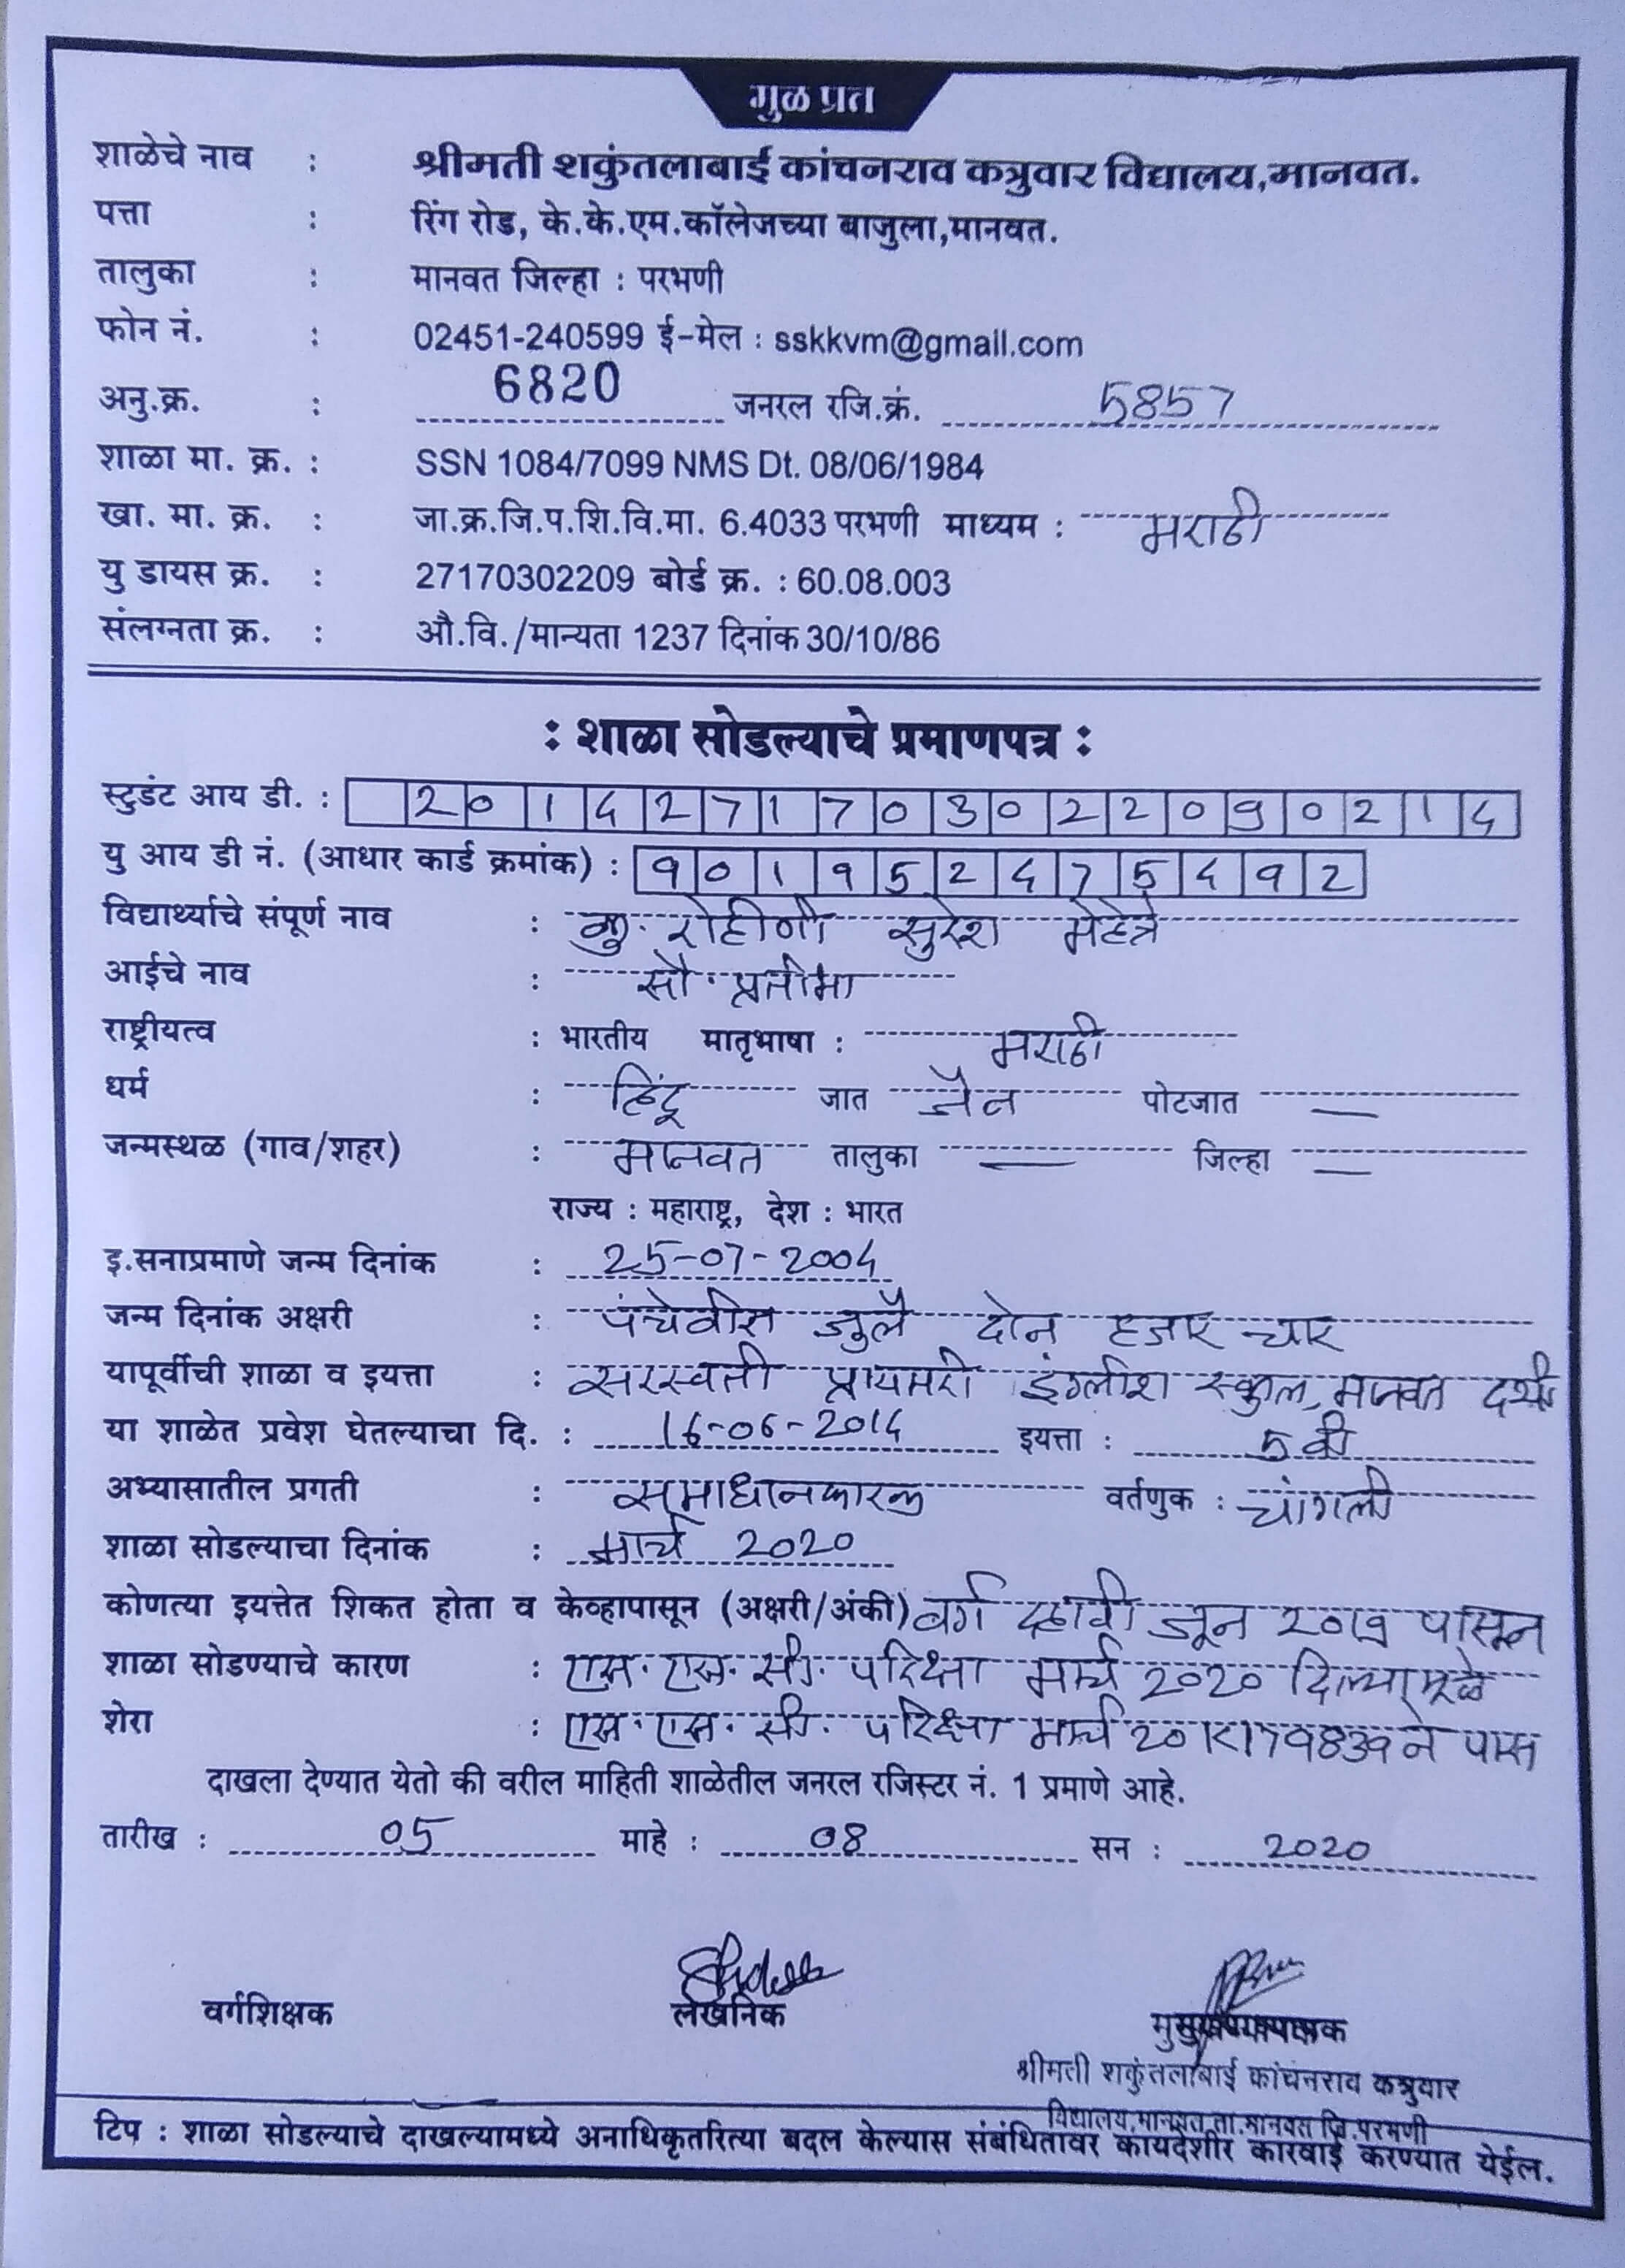 मुळ प्रत
शाळेचे नाव : श्रीमती शकुंतलाबाई कांचनराव कत्रुवार विद्यालय,मानवत.
पत्ता : रिंग रोड, के.के.एम.कॉलेजच्या बाजुला,मानवत.
तालुका : मानवत जिल्हा : परभणी
फोन नं. : 02451-240599 ई-मेल : sskkvm@gmail.com
अनु.क्र. : 6820 जनरल रजि.क्रं. 5857
शाळा मा. क्र. : SSN 1084/7099 NMS Dt. 08/06/1984
खा. मा. क्र. : जा.क्र.जि.प.शि.वि.मा. 6.4033 परभणी माध्यम : मराठी
यु डायस क्र. : 27170302209 बोर्ड क्र. : 60.08.003
संलग्नता क्र. : औ.वि./मान्यता 1237 दिनांक 30/10/86
: शाळा सोडल्याचे प्रमाणपत्र :
स्टुडंट आय डी. : 2014271703022090214
यु आय डी नं. (आधार कार्ड क्रमांक) : 901952475492
विद्यार्थ्याचे संपूर्ण नाव : कु. रोहीणी सुरेश मेहेत्रे
आईचे नाव : सौ. प्रतीभा
राष्ट्रीयत्व : भारतीय मातृभाषा : मराठी
धर्म : हिंदू जात जैन पोटजात —
जन्मस्थळ (गाव/शहर) : मानवत तालुका — जिल्हा —
राज्य : महाराष्ट्र, देश : भारत
इ.सनाप्रमाणे जन्म दिनांक : 25-07-2004
जन्म दिनांक अक्षरी : पंचेवीस जुलै दोन हजार चार
यापूर्वीची शाळा व इयत्ता : सरस्वती प्रायमरी इंग्लीश स्कुल, मानवत
या शाळेत प्रवेश घेतल्याचा दि. : 16-06-2014 इयत्ता : 5 वी
अभ्यासातील प्रगती : समाधानकारक वर्तणुक : चांगली
शाळा सोडल्याचा दिनांक : मार्च 2020
कोणत्या इयत्तेत शिकत होता व केव्हापासून (अक्षरी/अंकी) वर्ग जून 2019 पासून
शाळा सोडण्याचे कारण : एस. एस. सी. परिक्षा मार्च 2020 दिल्यामूळे
शेरा : एस. एस. सी. परिक्षा मार्च ने पास
दाखला देण्यात येतो की वरील माहिती शाळेतील जनरल रजिस्टर नं. 1 प्रमाणे आहे.
तारीख : 05 माहे : 08 सन : 2020
वर्गशिक्षक लेखनिक
श्रीमती शकुंतलाबाई कांचनराव कत्रुवार
विद्यालय,मानवत ता.मानवत जि.परभणी
टिप : शाळा सोडल्याचे दाखल्यामध्ये अनाधिकृतरित्या बदल केल्यास संबंधितावर कायदेशीर कारवाई करण्यात येईल.